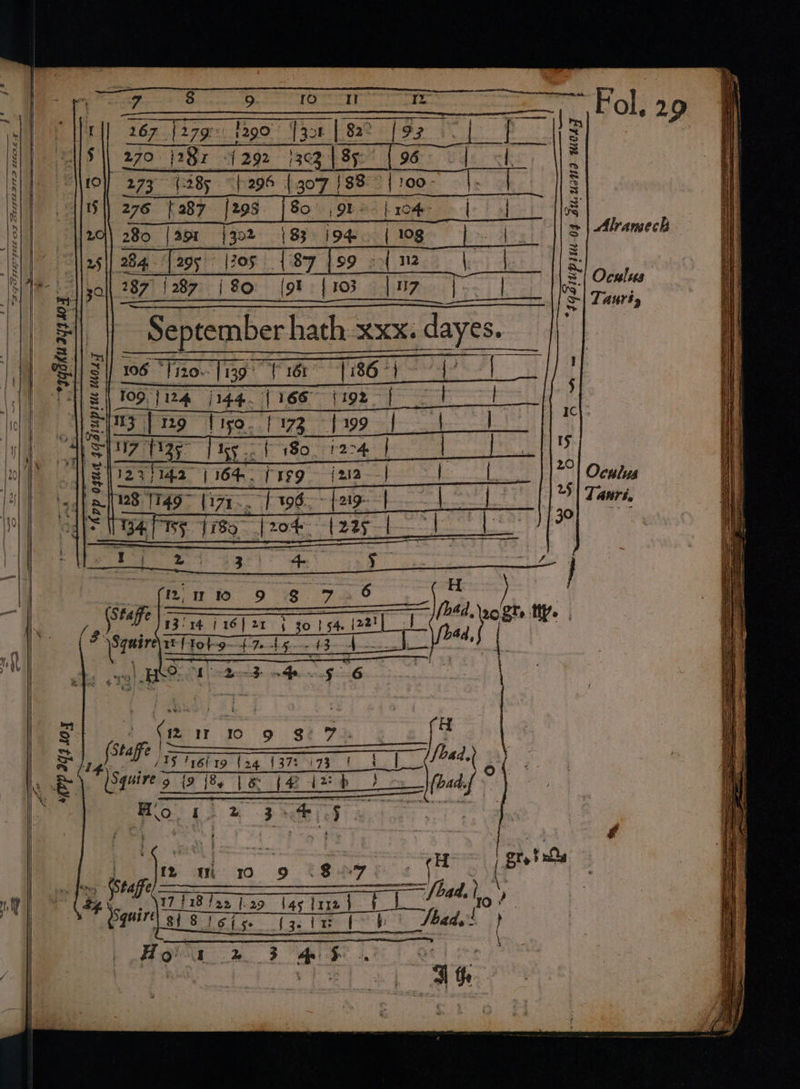 Fol. 29
7 8 9 10 11 12
1 267 279 290 301 82 93
5 270 281 292 303 85 96
10 273 285 296 307 88 100
15 276 287 298 80 91 104
20 280 291 302 83 94 108
25 284 295 305 87 99 112
30 287 287 80 91 103 117
From euening to midnight.
Alramech
Oculus
Tauri,
September hath xxx. dayes.
106 120 139 161 186 1
109 124 144 166 192 5
113 129 150 173 199 10
117 135 155 180 204 15
123 142 164 189 212 20
128 149 171 196 219 25
134 155 180 204 225 30
1 2 3 4 5
For the nyght.
From midnight vnto day.
Oculus
Tauri,
12 11 10 9 8 7 6 H
Staffe 13 14 16 21 30 54 221 shad. 20 gr.
2 Squire 11 10 9 7 5 3 shad.
Ho. 1 2 3 4 5 6
12 11 10 9 8 7 H
Staffe 15 16 19 24 37 73 shad.
14 Squire 9 9 8 6 4 2 shad. 0
Ho. 1 2 3 4 5
For the day.
12 11 10 9 8 7 H
Staffe 17 18 22 29 45 112 shad. 10
24 Squire 8 8 6 5 3 1 shad.
Ho 1 2 3 4 5